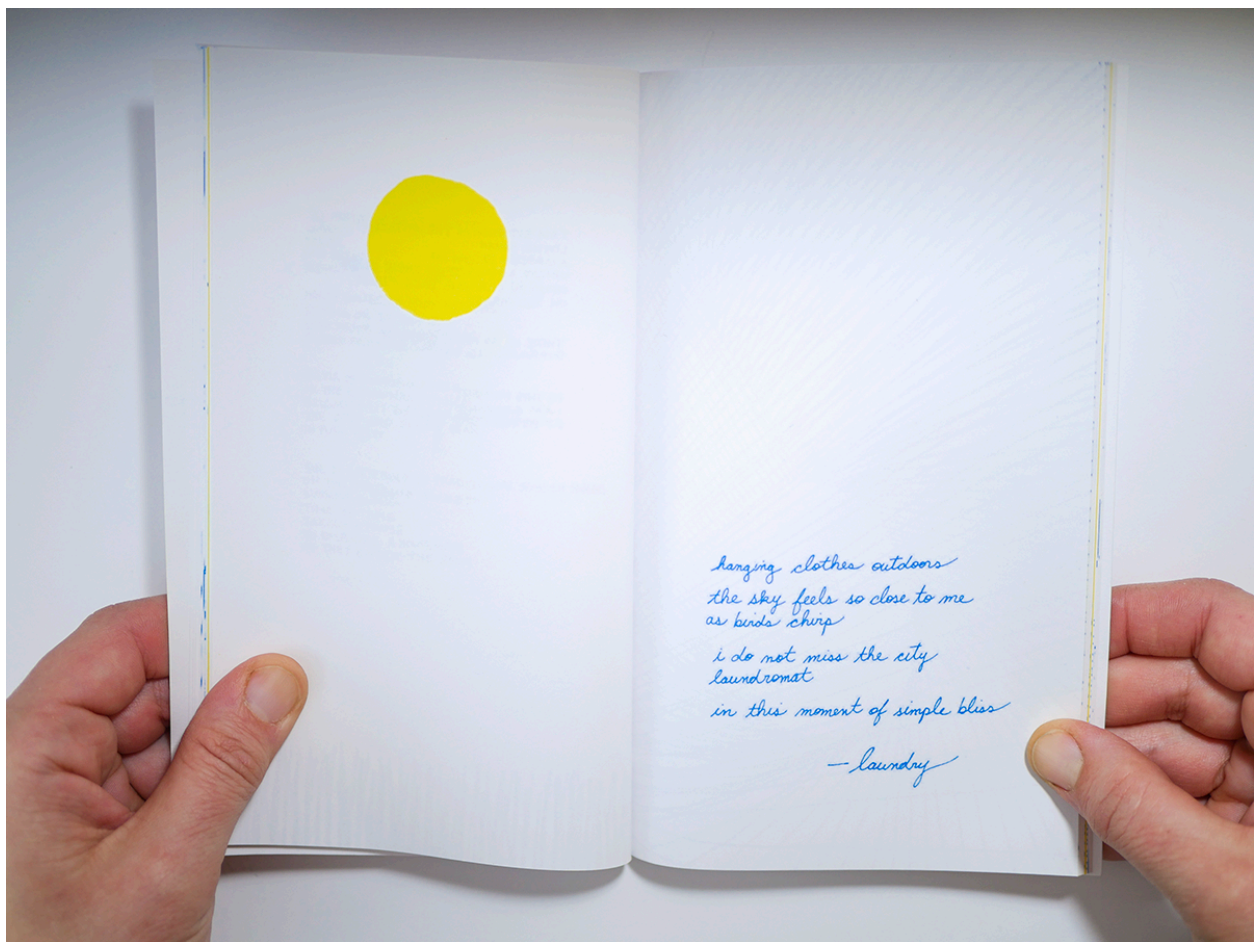 hanging clothes outdoors
the sky feels so close to me
as birds chirp
i do not miss the city
laundromat
in this moment of simple bliss
— laundry